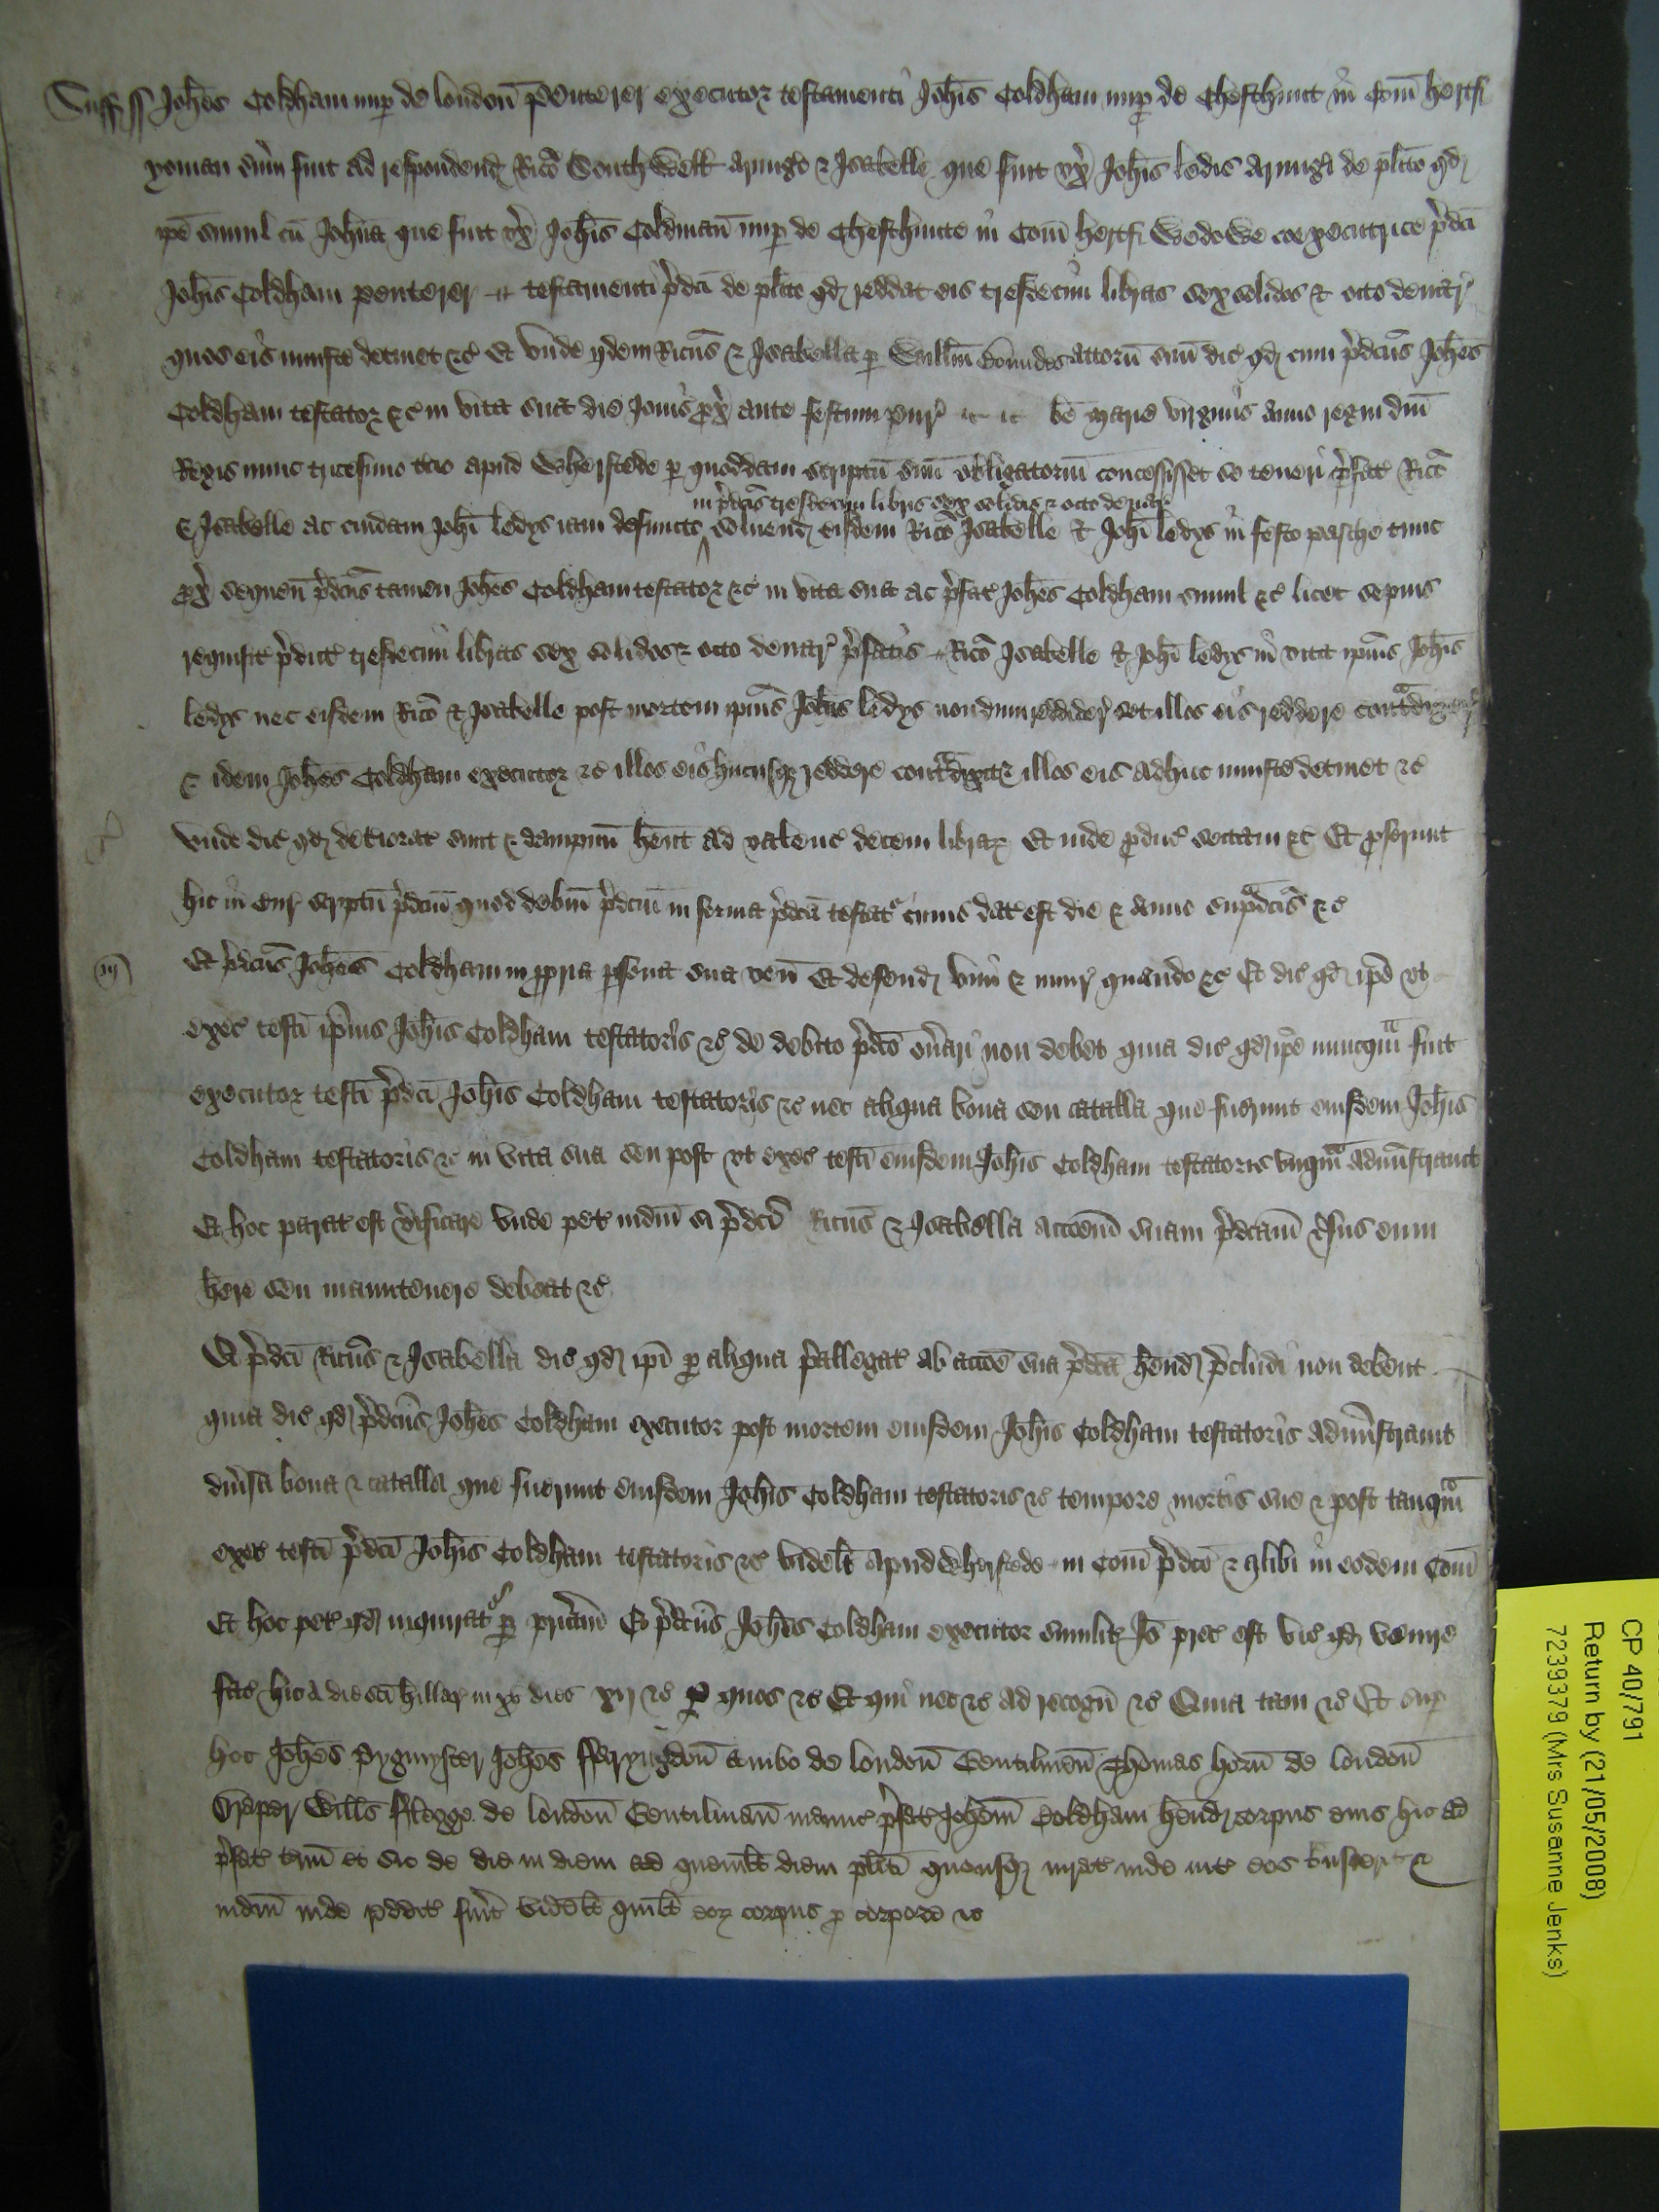 Suff ss Joh̄es Coldham nup de london̄ peuterer executor testamenti Joh̄is Coldham nup de Chesthunt in Com̄ hertf
yoman sum̄ fuit ad respondend Ric̄o Southwell Armig̃o & Isabelle que fuit ux̃ Joh̄is ledis Armig̃i de pl̄ito qd
ip̄e simul cū Joh̄na que fuit ux̃ Joh̄is Coldman̄ nup de Chesthunte in Com̄ hertf Wedowe coexecutrice p̃dc̄i
Joh̄is Coldham peuterer testamenti p̃dc̄i de pl̄ito qd reddat eis tresdecim libras sex solidos & octo denar̃
quos eis iniuste detinet &c̃ Et unde ijdem Ricūs & Isabella p Will̄m attorn̄ suū dic̃ qd cum p̃dcūs Joh̄es
Coldham testator &c̃ in vita sua die Jovis px̃ ante festum Pur̃ be᷉ Marie virginis anno regni dn̄i
Regis nunc tricesimo t̄cio apud Wherstede p quoddam scriptū suū obligatoriū concessisset se teneri p̃fat̃ Ric̄o
in p̃dcīs tresdecim libris sex solidis & octo denar̃
& Isabelle ac cuidam Joh̄i ledys iam defuncto solvend eisdem Ric̄o Isabelle & Joh̄i ledys in festo pasche tunc
px̃ sequen̄ p̃dcūs tamen Joh̄es Coldham testator &c̃ in vita sua ac p̃fat̃ Joh̄es Coldham simul &c̃ licet sepius
requisit̃ p̃dict̃ tresdecim libras sex solidos & octo denar̃ p̃fatis Ric̄o Isabelle & Joh̄i ledys in vita ipiūs Joh̄is
ledys nec eisdem Ric̄o & Isabelle post mortem ipiūs Joh̄is ledys nondum reddider̃ set illos eis reddere cont̃dixer̃
& idem Joh̄es Coldham executor &c̃ illos eis hucusq̨ reddere cont̃dixit & illos eis adhuc iniuste detinet &c̃
unde dic̃ qd deteriorat̃ sunt & dampnū hēnt ad valenc̃ decem librar̃ Et inde produc̃ sectam &c̃ Et proferunt
hic in cur̃ scriptū p̃dcūm quod debitū p̃dcūm in forma p̃dcā testat̃ cuius dat̃ est die & anno sup̃dcīs &c̃
Et p̃dcūs Joh̄es Coldham in ppria psona sua ven̄ Et defend vim & iniur̃ quando &c̃ Et dic̃ qd ip̄e ut
exec̃ testī ip̄ius Joh̄is Coldham testatoris &c̃ de debito p̃dcō on̄ari non debet quia dic̃ qd ip̄e nunq̃m fuit
executor testī p̃dcī Joh̄is Coldham testatoris &c̃ nec aliqua bona seu catalla que fuerunt eiusdem Joh̄is
Coldham testatoris &c̃ in vita sua seu post ut exec̃ testī eiusdem Joh̄is Coldham testatoris unq̃m administravit
Et hoc parat̃ est v̄ificare unde pet̃ iudm̄ si p̃dcī Ricūs & Isabella acc̄oem̄ suam p̃dcām v̄sus eum
h̄ere seu manutenere debeat &c̃
Et p̃dcī Ricūs & Isabella dic̃ qd ip̄i p aliqua p̃allegat̃ ab acc̄oe sua p̃dcā h̄end p̃cludi non debent
quia dic̃ qd p̃dcūs Joh̄es Coldham executor post mortem eiusdem Joh̄is Coldham testatoris administravit
div̄sa bona & catalla que fuerunt eiusdem Joh̄is Coldham testatoris &c̃ tempore mortis sue & post tanq̃m
exec̃ testī p̃dcī Joh̄is Coldham testatoris &c̃ videlt̃ apud Wherstede in Com̄ p̃dcō & alibi in eodem Com̄
Et hoc pet̃ qd inquirat̃ p pr̄iam Et p̃dcūs Joh̄es Coldham executor similit̃ Iō prec̃ est vic̃ qd venire
fac̃ hic a die sc̄i hillar̃ in xv dies xij &c̃ p quos &c̃ Et qui nec &c̃ ad recogn̄ &c̃ Quia tam &c̃ Et sup
hoc Joh̄es Pygmyster Joh̄es fferyngdon̄ ambo de london̄ Gentilmen̄ Thomas horn̄ de london̄
Draper Will̄s fflegge de london̄ Gentilman̄ manuc̃ p̃fat̃ Joh̄em Coldham h̄end corpus eius hic ad
p̃fat̃ t̄mū et sic de die in diem ad quemlt̃ diem pl̄iti quousq̨ iurat̃ inde int̃ eos t̄nsierit &
iudm̄ inde reddit̃ fuit̃ videlt̃ quilt̃ eor̃ corpus p corpore &c̃
CP 40/791
Return by (21/05/2008)
7239379 (Mrs Susanne Jenks)